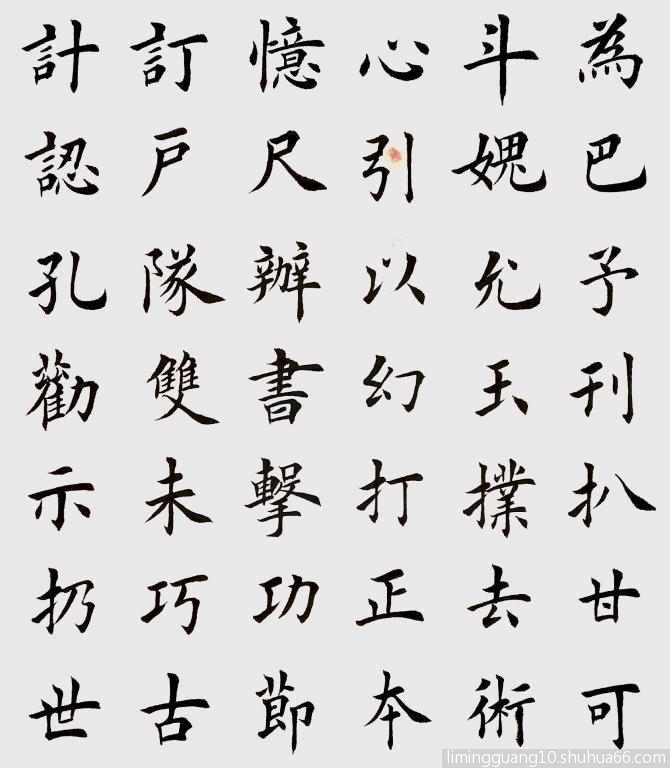 計訂憶心斗為
認戶尺引媿巴
孔隊辦以允予
勸雙書幻玉刊
示未擊打撲扒
扔巧功正去甘
世古節本術可
limingguang10.shuhua66.com